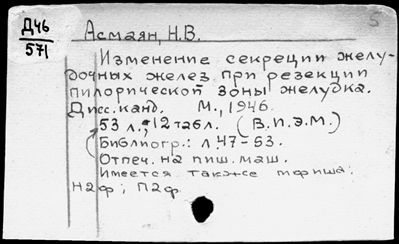 Д46
571
Асмаян, Н.В.
5
Изменение секреции желу-
дочных желез при резекции
пилорической зоны желудка.
Дисс. канд. М., 1946.
53 л.; 12 табл. (В.И.Э.М.)
Библиогр.: л. 47-53.
Отпеч. на пиш. маш.
Имеется также тфиша:
Н2ф; П2ф.